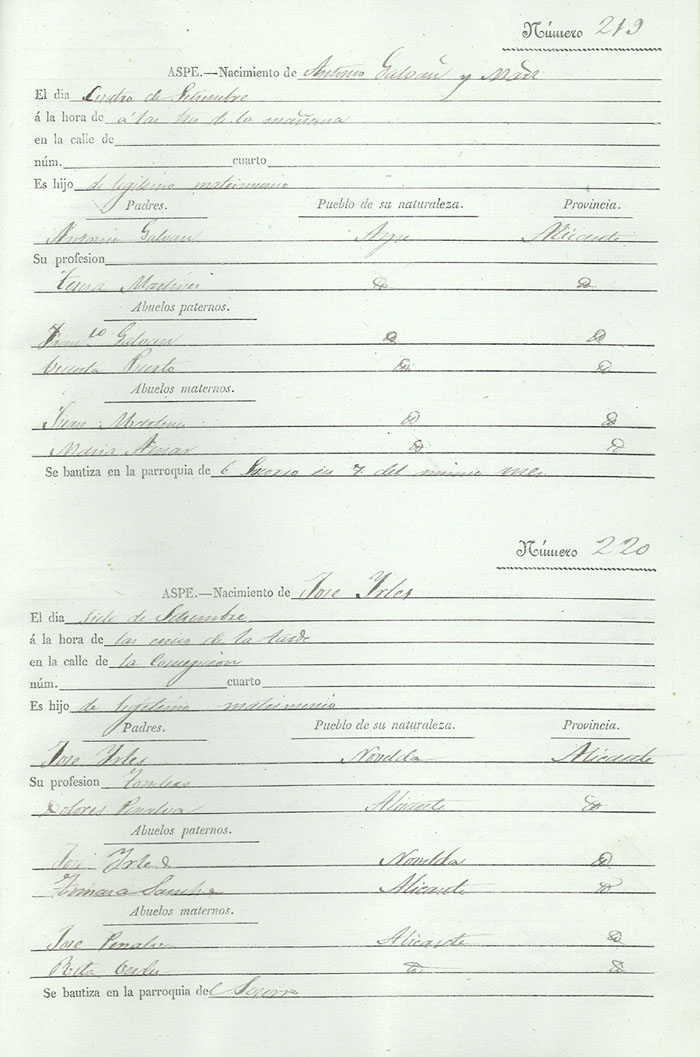 Número 219
ASPE.—Nacimiento de Antonio Galván y
El dia Cuatro de Setiembre
á la hora de á las tres de la mañana
en la calle de
núm. cuarto
Es hijo de legitimo matrimonio
Padres. Pueblo de su naturaleza. Provincia.
Antonio Galvan Aspe Alicante
Su profesion
Martinez
Abuelos paternos.
Galvan
Puerto
Abuelos maternos.
Juan
Maria
Se bautiza en la parroquia de el Socorro en 7 del mismo mes
Número 220
ASPE.—Nacimiento de Jose Yrles
El dia siete de Setiembre
á la hora de las cinco de la tarde
en la calle de la Concepcion
núm. cuarto
Es hijo de legitimo matrimonio
Padres. Pueblo de su naturaleza. Provincia.
Jose Yrles Novelda Alicante
Su profesion
Dolores Penalva Alicante
Abuelos paternos.
José Yrles Novelda
Sanchez Alicante
Abuelos maternos.
Jose Penalva Alicante
Rita
Se bautiza en la parroquia del Socorro